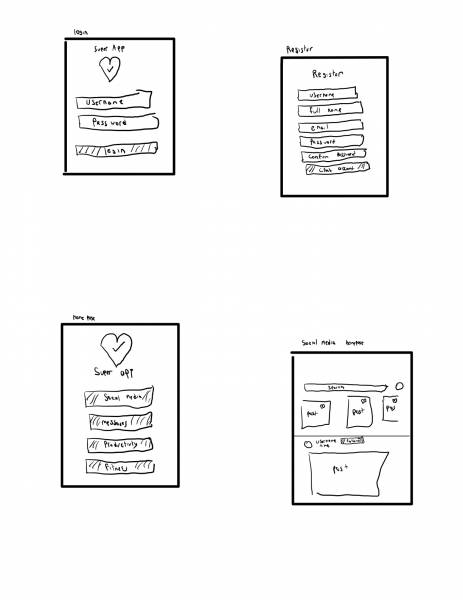 login
Super App
Username
Password
login
Register
Register
Username
full name
email
Password
Confirm Password
home page
Super api
Social media
messages
Productivity
Fitness
Social media homepage
search
post
post
post
username
post